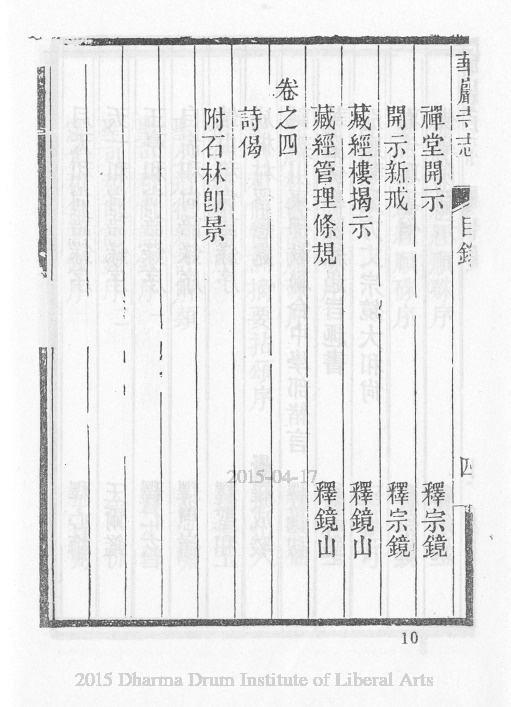 華嚴寺志 目錄 四
禪堂開示 釋宗鏡
開示新戒 釋宗鏡
藏經樓揭示 釋鏡山
藏經管理條規 釋鏡山
卷之四
詩偈
附石林卽景
2015-04-17
10
2015 Dharma Drum Institute of Liberal Arts